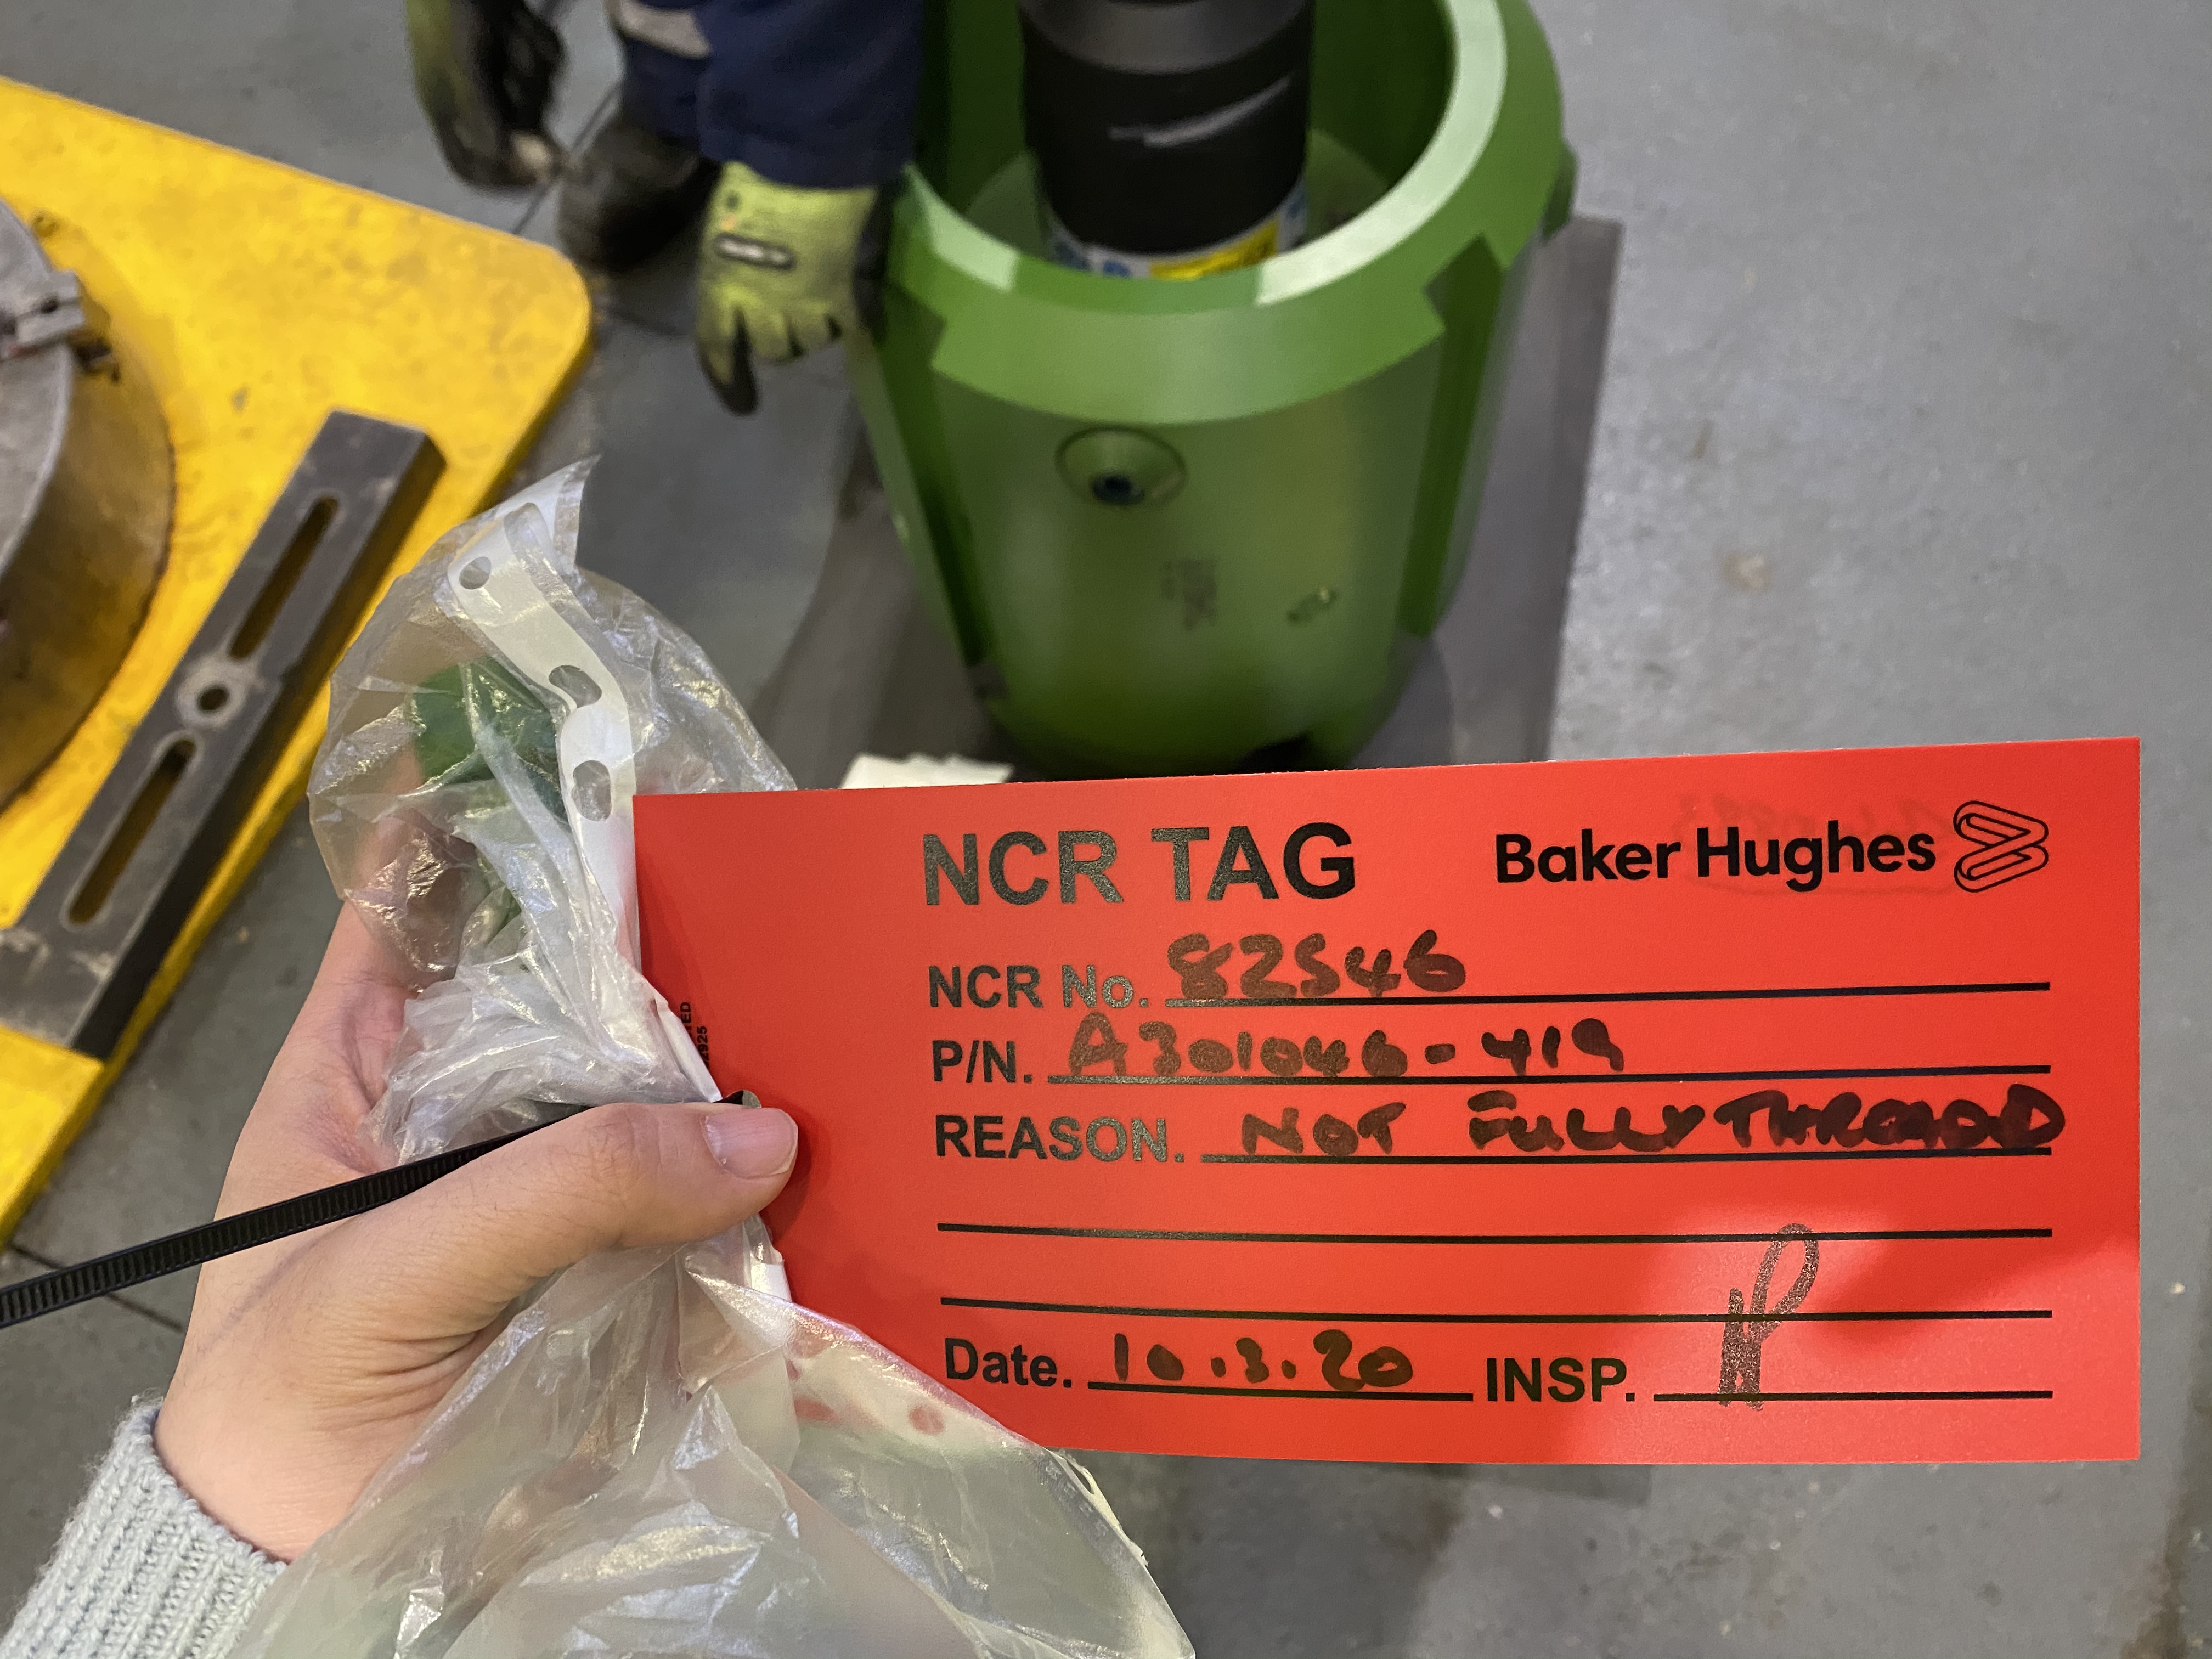 NCR TAG Baker Hughes
NCR No. 82546
P/N. A301046-419
REASON. NOT FULLY THREADD
Date. 10.3.20 INSP.